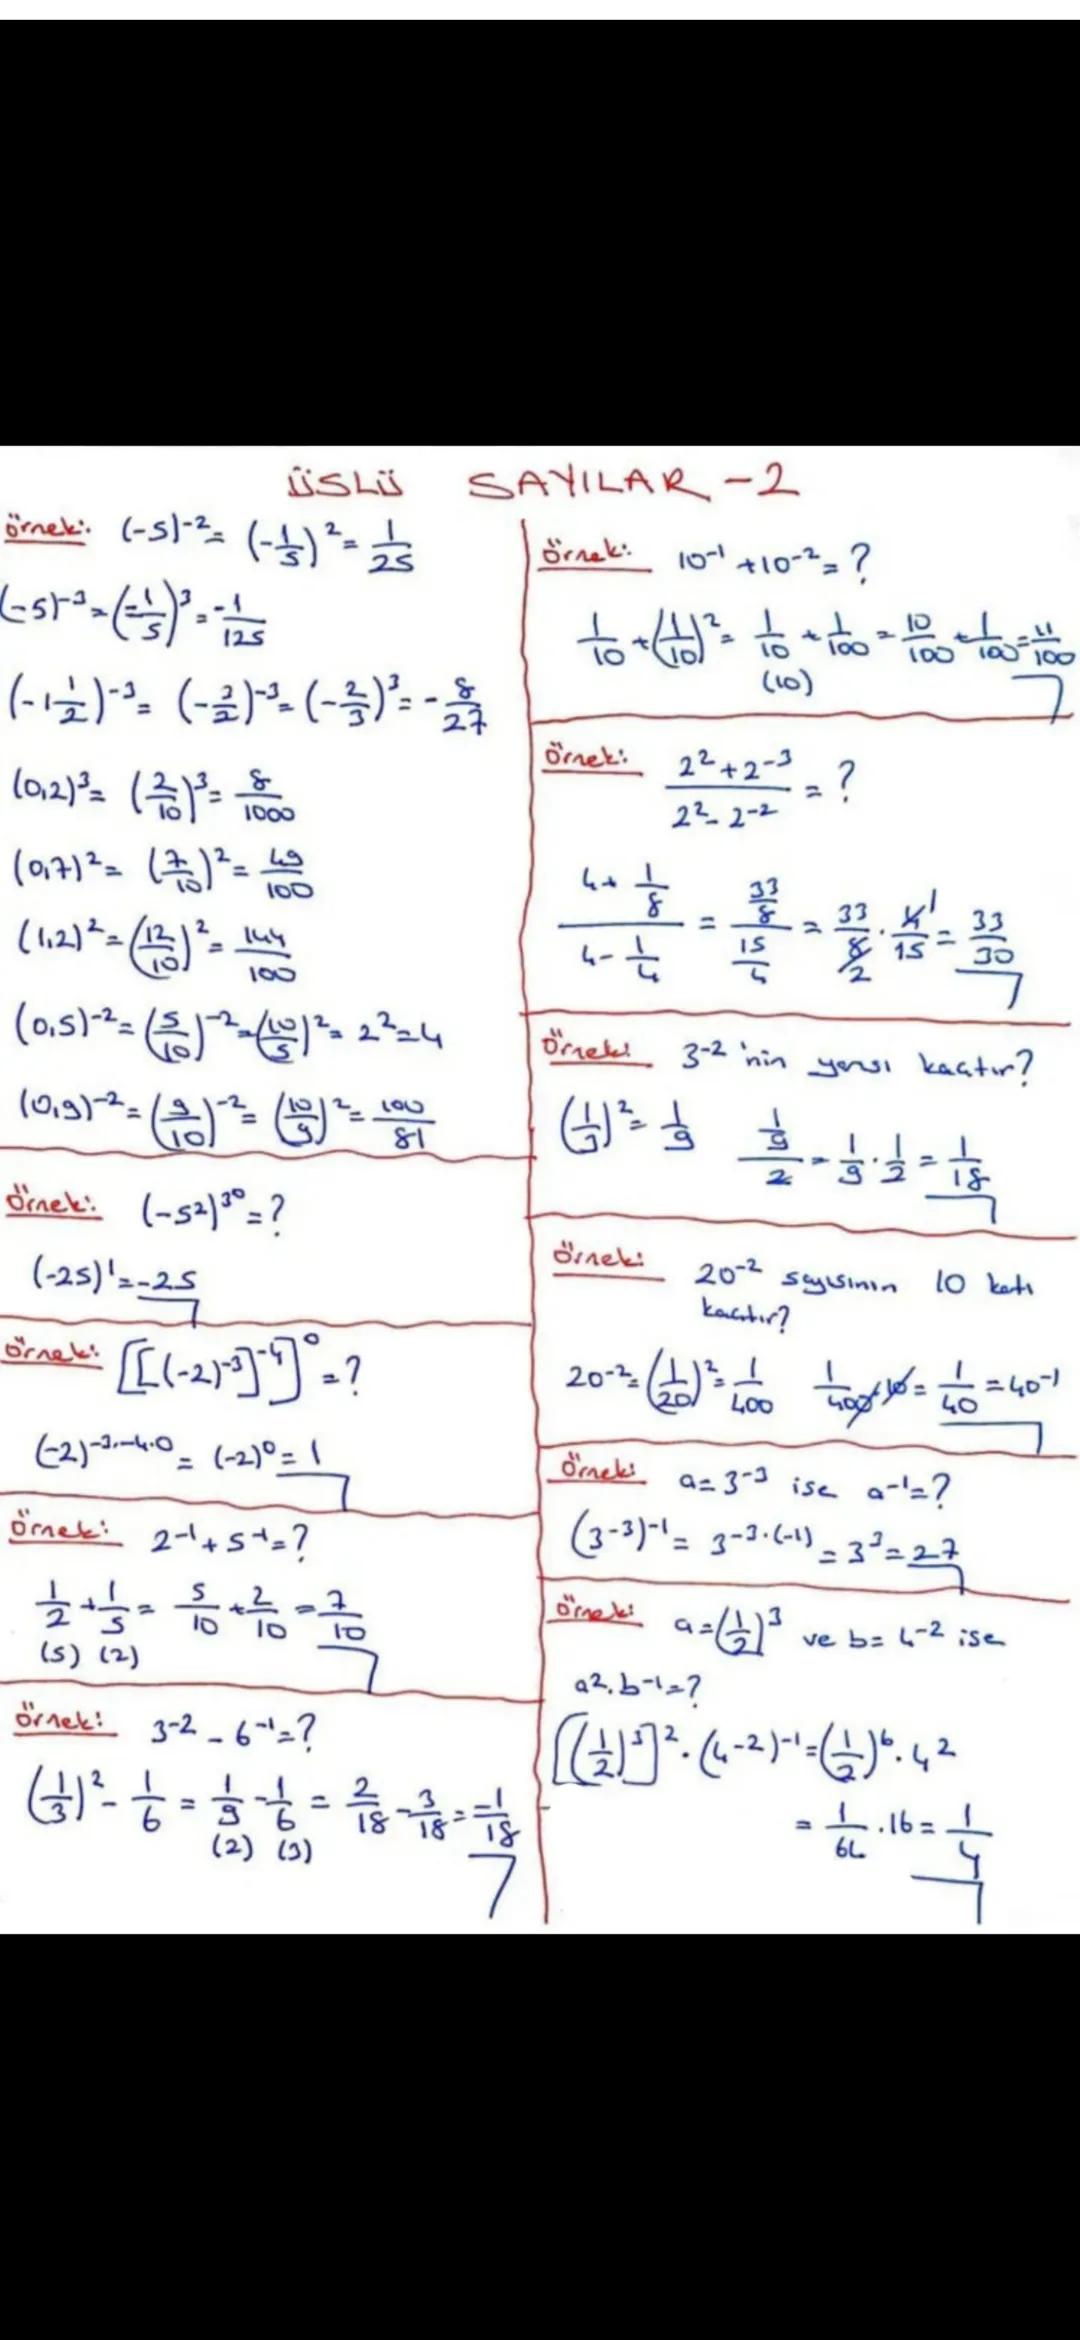 ÜSLÜ SAYILAR - 2
Örnek: (-5)^-2 = (-1/5)^2 = 1/25
(-5)^-3 = (-1/5)^3 = -1/125
(-1 1/2)^-3 = (-3/2)^-3 = (-2/3)^3 = -8/27
(0,2)^3 = (2/10)^3 = 8/1000
(0,7)^2 = (7/10)^2 = 49/100
(1,2)^2 = (12/10)^2 = 144/100
(0,5)^-2 = (5/10)^-2 = (10/5)^2 = 2^2 = 4
(0,9)^-2 = (9/10)^-2 = (10/9)^2 = 100/81
Örnek: (-5^2)^3^0 = ?
(-25)^1 = -25
Örnek: [[(-2)^-3]^-4]^0 = ?
(-2)^-3.-4.0 = (-2)^0 = 1
Örnek: 2^-1 + 5^-1 = ?
1/2 + 1/5 = 5/10 + 2/10 = 7/10
(5) (2)
Örnek: 3^-2 - 6^-1 = ?
(1/3)^2 - 1/6 = 1/9 - 1/6 = 2/18 - 3/18 = -1/18
(2) (3)
Örnek: 10^-1 + 10^-2 = ?
1/10 + (1/10)^2 = 1/10 + 1/100 = 10/100 + 1/100 = 11/100
(10)
Örnek: (2^2 + 2^-3)/(2^2 - 2^-2) = ?
(4 + 1/8)/(4 - 1/4) = (33/8)/(15/4) = 33/8 . 4/15 = 33/30
2 1
Örnek: 3^-2 'nin yarısı kaçtır?
(1/3)^2 = 1/9 (1/9)/2 = 1/9 . 1/2 = 1/18
Örnek: 20^-2 sayısının 10 katı
kaçtır?
20^-2 = (1/20)^2 = 1/400 1/400 . 10 = 1/40 = 40^-1
Örnek: a = 3^-3 ise a^-1 = ?
(3^-3)^-1 = 3^-3.(-1) = 3^3 = 27
Örnek: a = (1/2)^3 ve b = 4^-2 ise
a^2 . b^-1 = ?
[(1/2)^3]^2 . (4^-2)^-1 = (1/2)^6 . 4^2
= 1/64 . 16 = 1/4